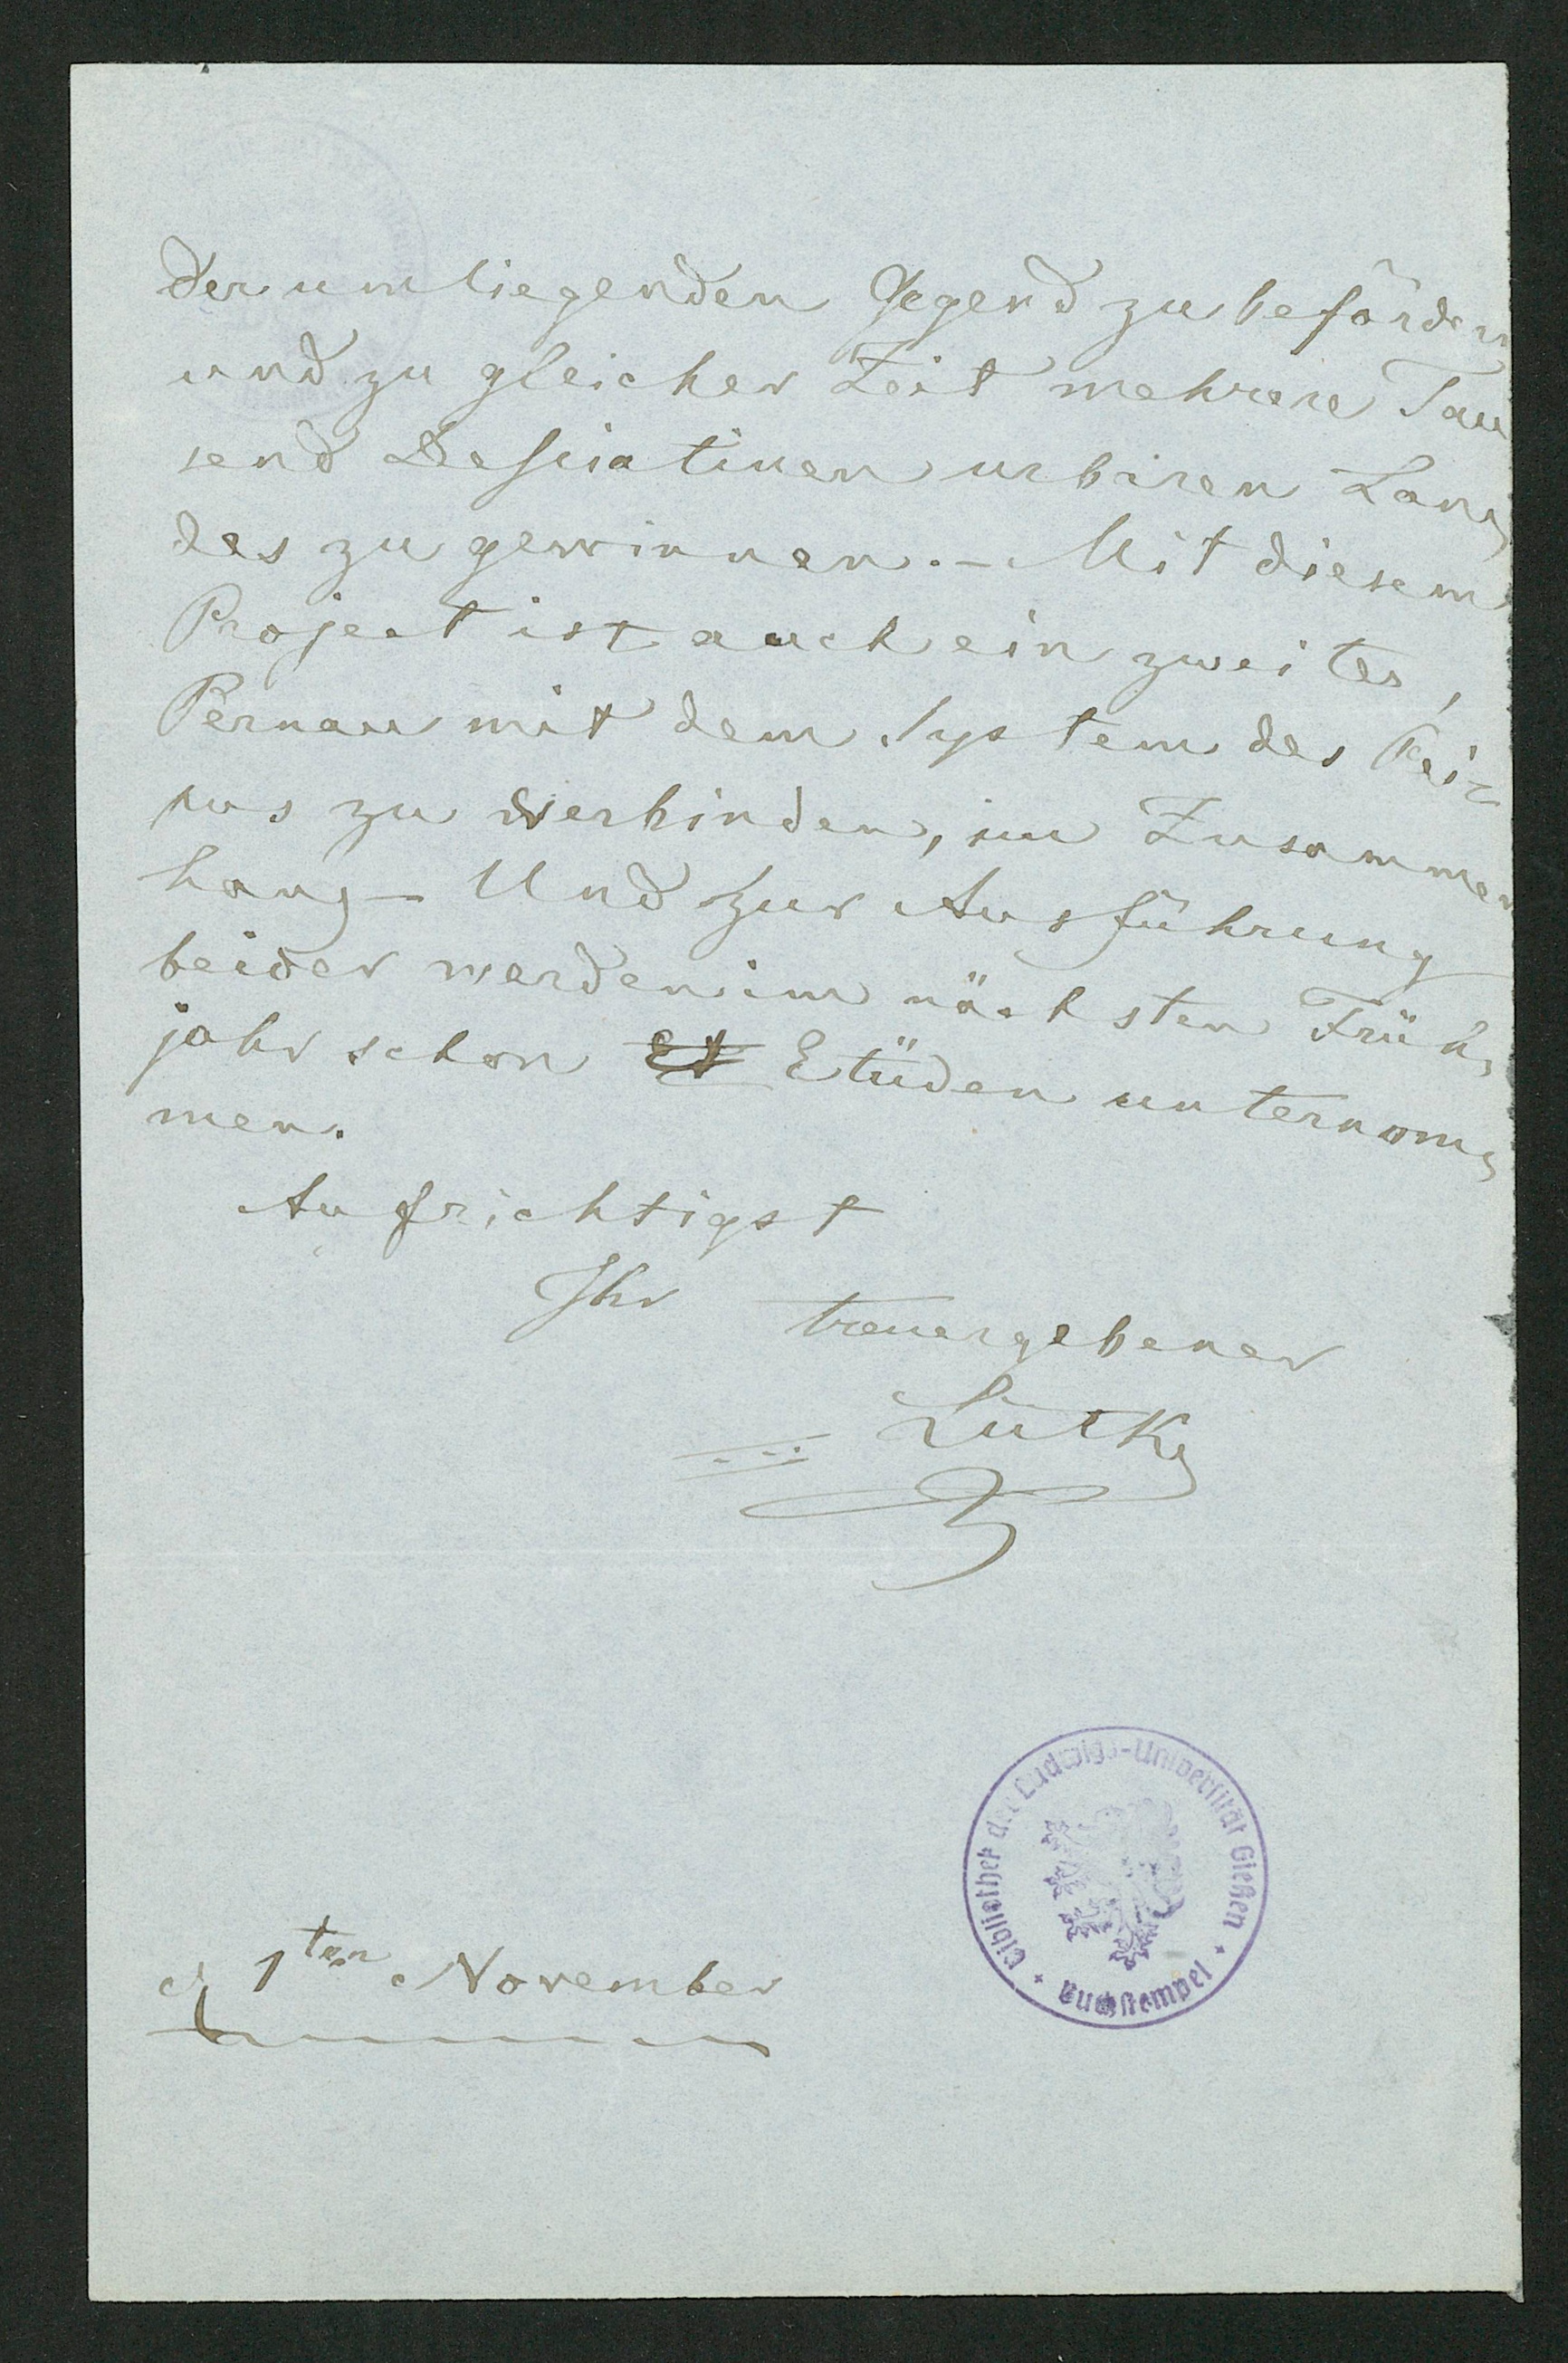 der umliegenden Gegend zu befördern
und zu gleicher Zeit mehrere Tau
send Deßiatinen urbaren Lan,
des zu gewinnen. – Mit diesem
Project ist auch ein zweites,
Pernau mit dem System des Pei-
pus zu verbinden, im Zusammen
hang – Und zur Ausführung
beider werden im nächsten Früh,
jahr schon Et Etüden unternom,
men.
Aufrichtigst
Ihr treuergebener
d 1ten November
Bibliothek der Ludwigs-Universität Gießen
Buchstempel